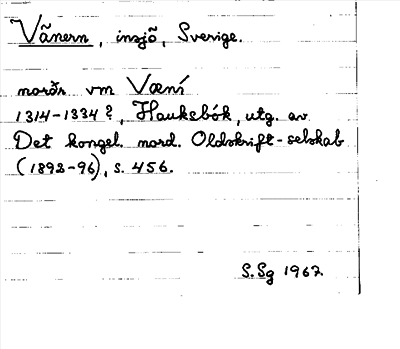 Vänern, insjö, Sverige.
norðr vm Væní
1314-1334?, Hauksbók, utg. av
Det kongel. nord. Oldskrift-selskab
(1892-96), s. 456.
S.Sg 1962